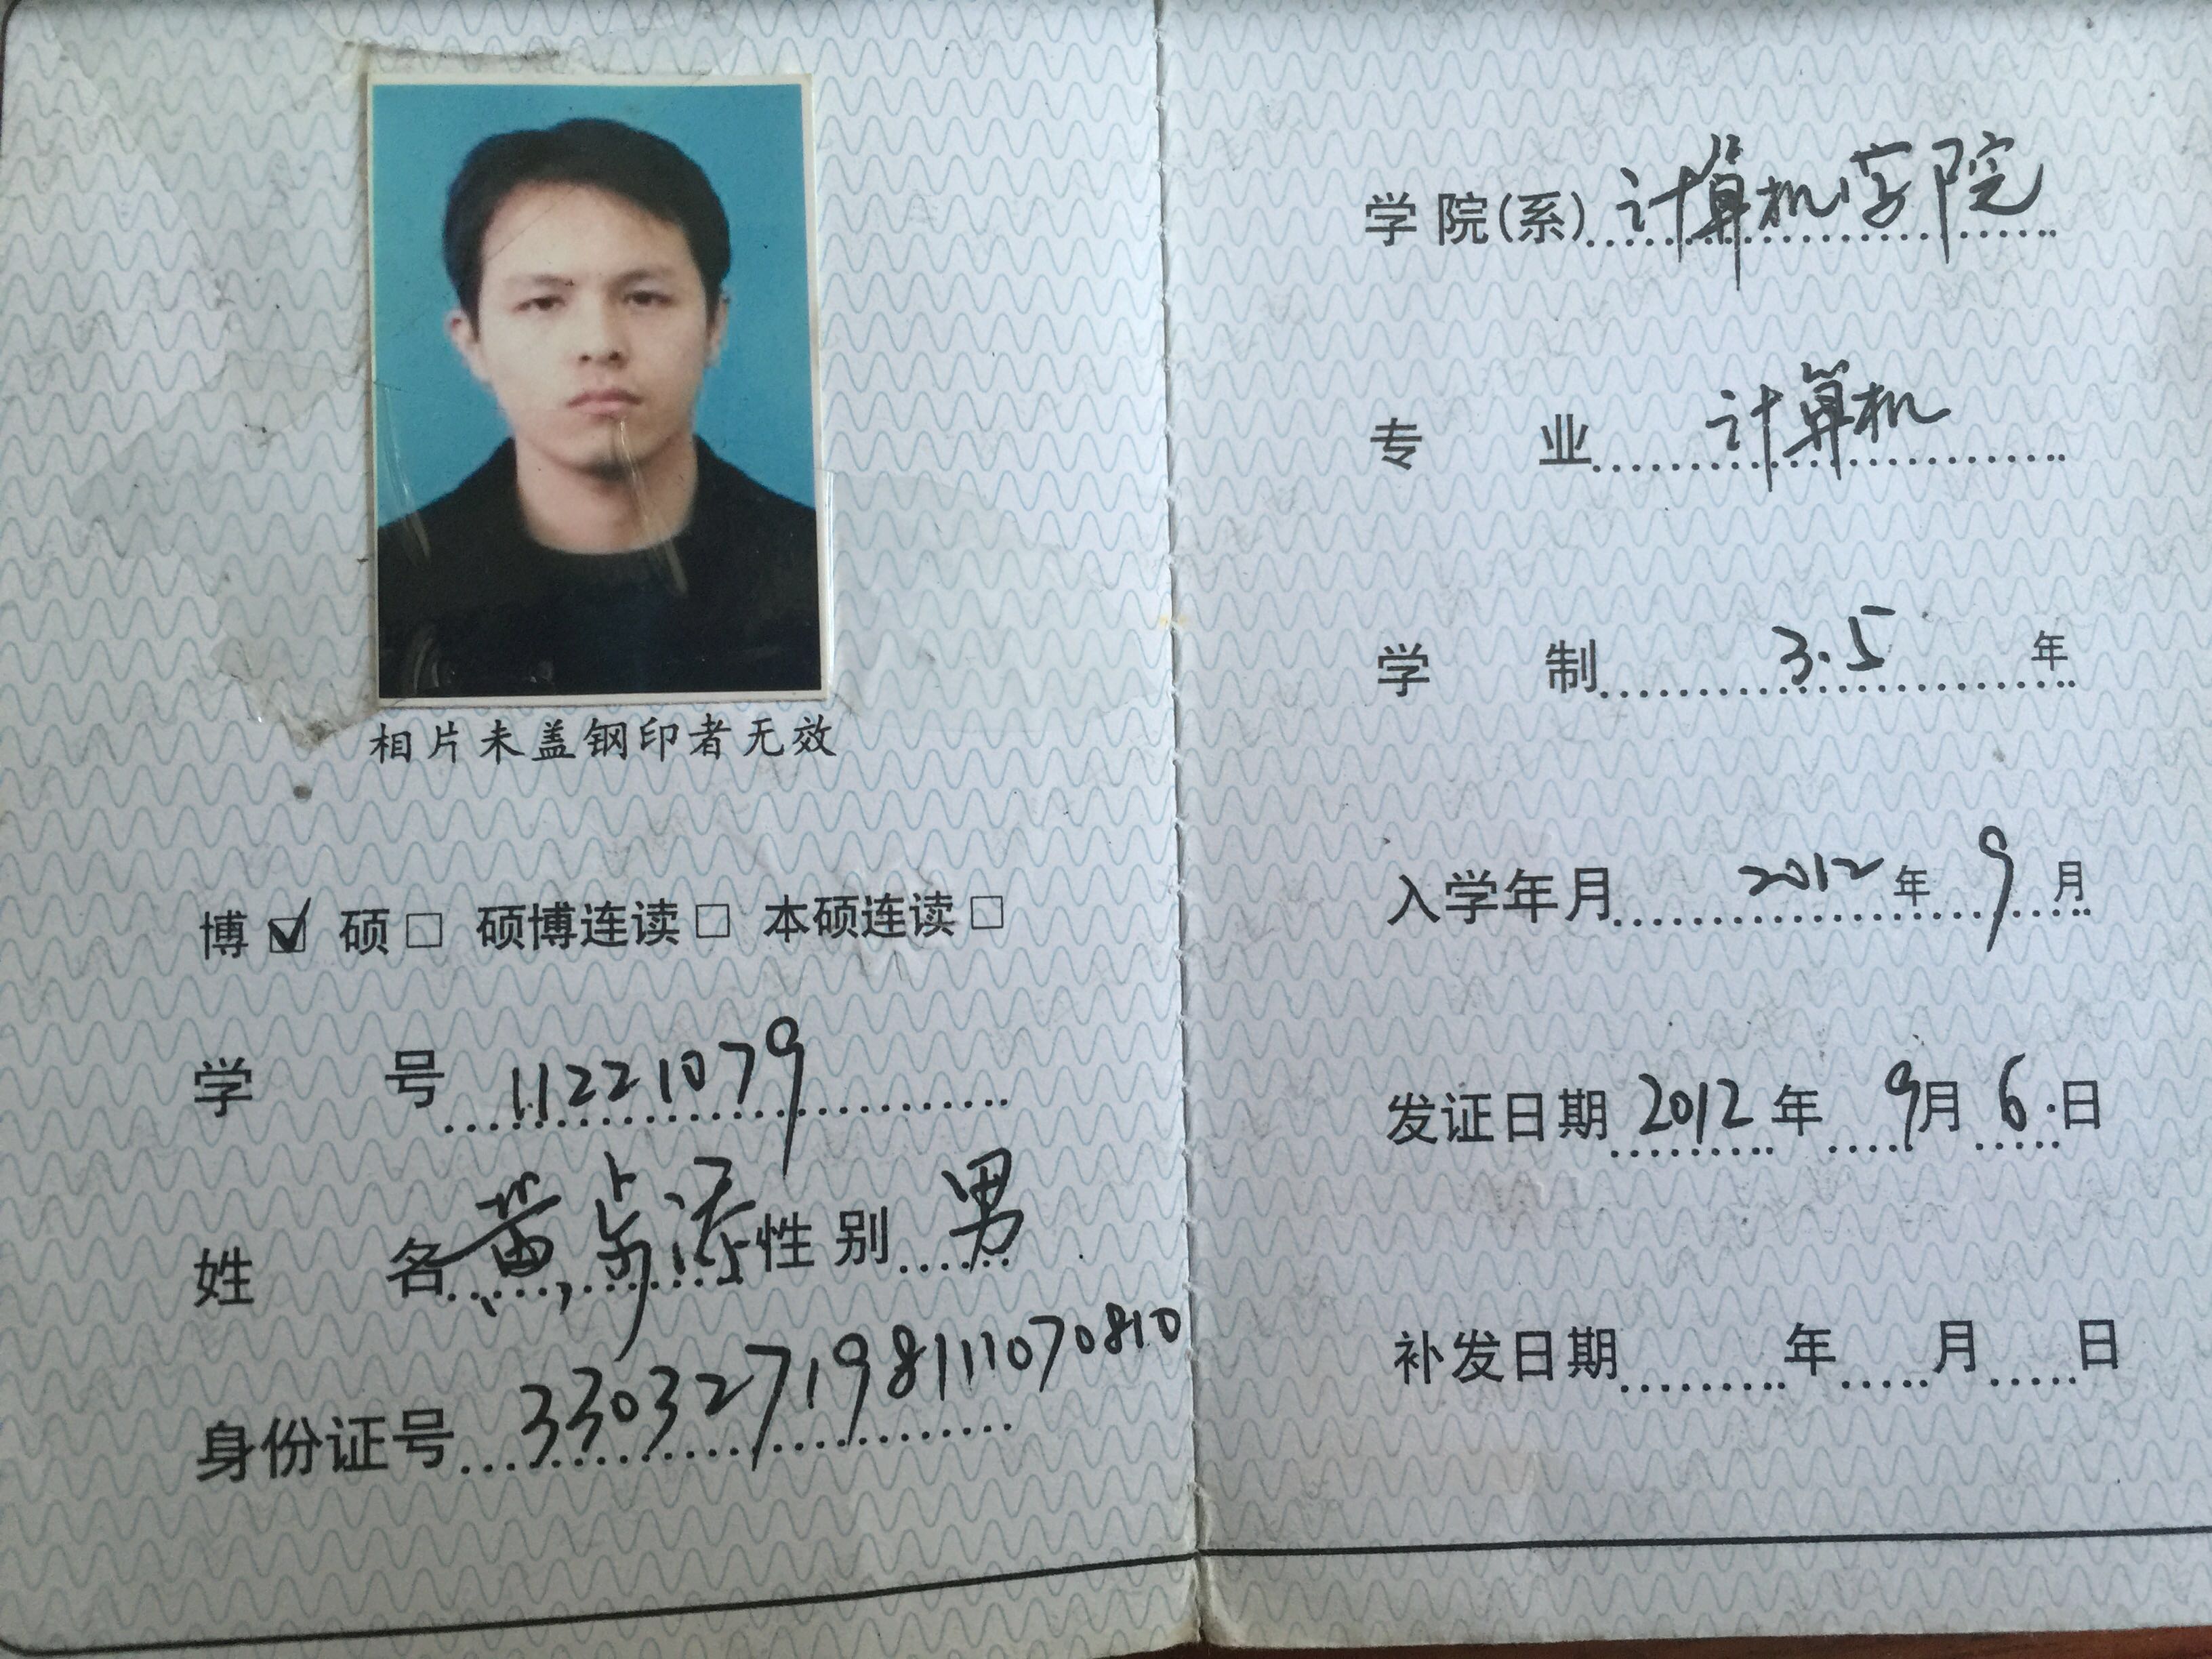 相片未盖钢印者无效
博 ☑ 硕 □ 硕博连读 □ 本硕连读 □
学 号 11221079
姓 名 黄步添 性别 男
身份证号 330327198111070810
学院(系) 计算机学院
专 业 计算机
学 制 3.5 年
入学年月 2012 年 9 月
发证日期 2012 年 9 月 6 日
补发日期 年 月 日